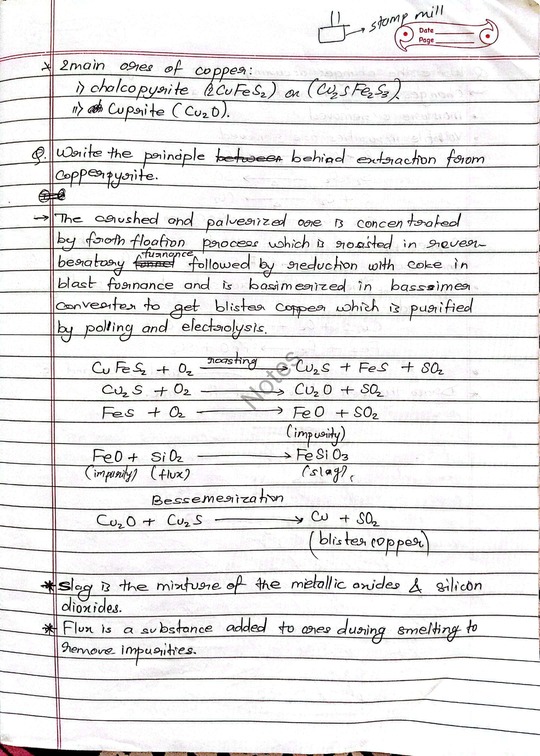 stamp mill
Date
Page
* 2 main ores of copper:
i) chalcopyrite (2CuFeS₂) or (Cu₂SFe₂S₃).
ii) Cuprite (Cu₂O).
Q. Write the principle between behind extraction from
copperpyrite.
→ The crushed and palverized ore is concentrated
by froth floation process which is roasted in rever-
beratory furnance followed by reduction with coke in
blast fornance and is basimerized in bassimer
converter to get blister copper which is purified
by polling and electrolysis.
CuFeS₂ + O₂ roasting → Cu₂S + FeS + SO₂
Cu₂S + O₂ → Cu₂O + SO₂
FeS + O₂ → FeO + SO₂
(impurity)
FeO + SiO₂ → FeSiO₃
(impurity) (flux) (slag).
Bessemerization
Cu₂O + Cu₂S → Cu + SO₂
(blister copper)
* Slag is the mixture of the metallic oxides & silicon
dioxides.
* Flux is a substance added to ores during smelting to
remove impurities.
Notes